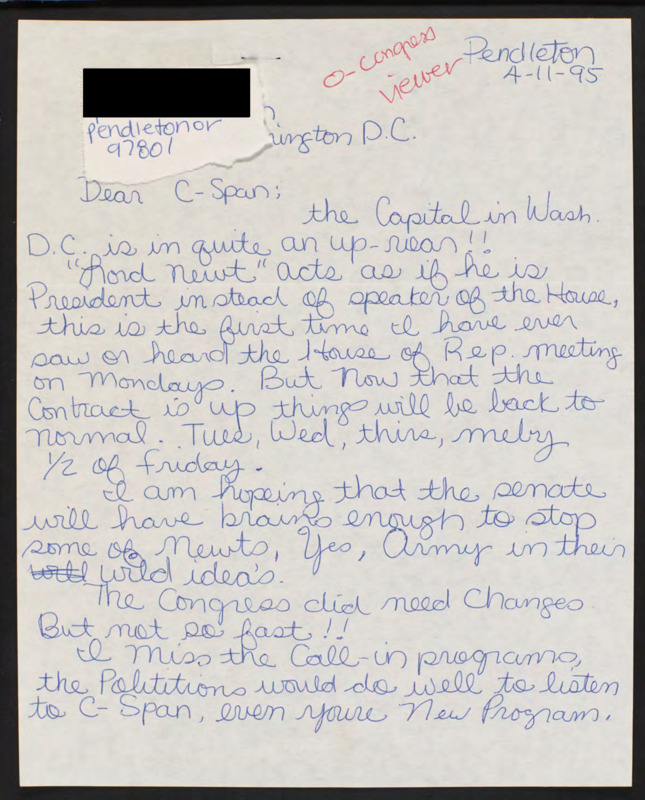 o-congress
viewer
Pendleton
4-11-95
pendleton or
97801
ington D.C.
Dear C-Span;
the Capital in Wash.
D.C. is in quite an up-roar!!
"Lord Newt" acts as if he is
President instead of speaker of the House,
this is the first time I have ever
saw or heard the House of Rep. meeting
on Mondays. But Now that the
Contract is up things will be back to
normal. Tues, Wed, thirs, meby
1/2 of Friday.
I am hopeing that the senate
will have brains enough to stop
some of Newts, Yes, Army in their
wild idea's.
The Congress did need Changes
But not so fast!!
I miss the Call-in programs,
the Politicions would do well to listen
to C-Span, even youre New Program.